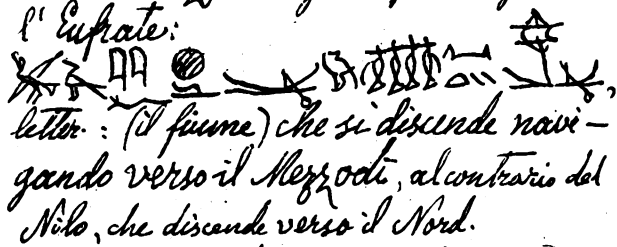 l'Eufrate:
letter.: (il fiume) che si discende navi-
gando verso il Mezzodì, al contrario del
Nilo, che discende verso il Nord.